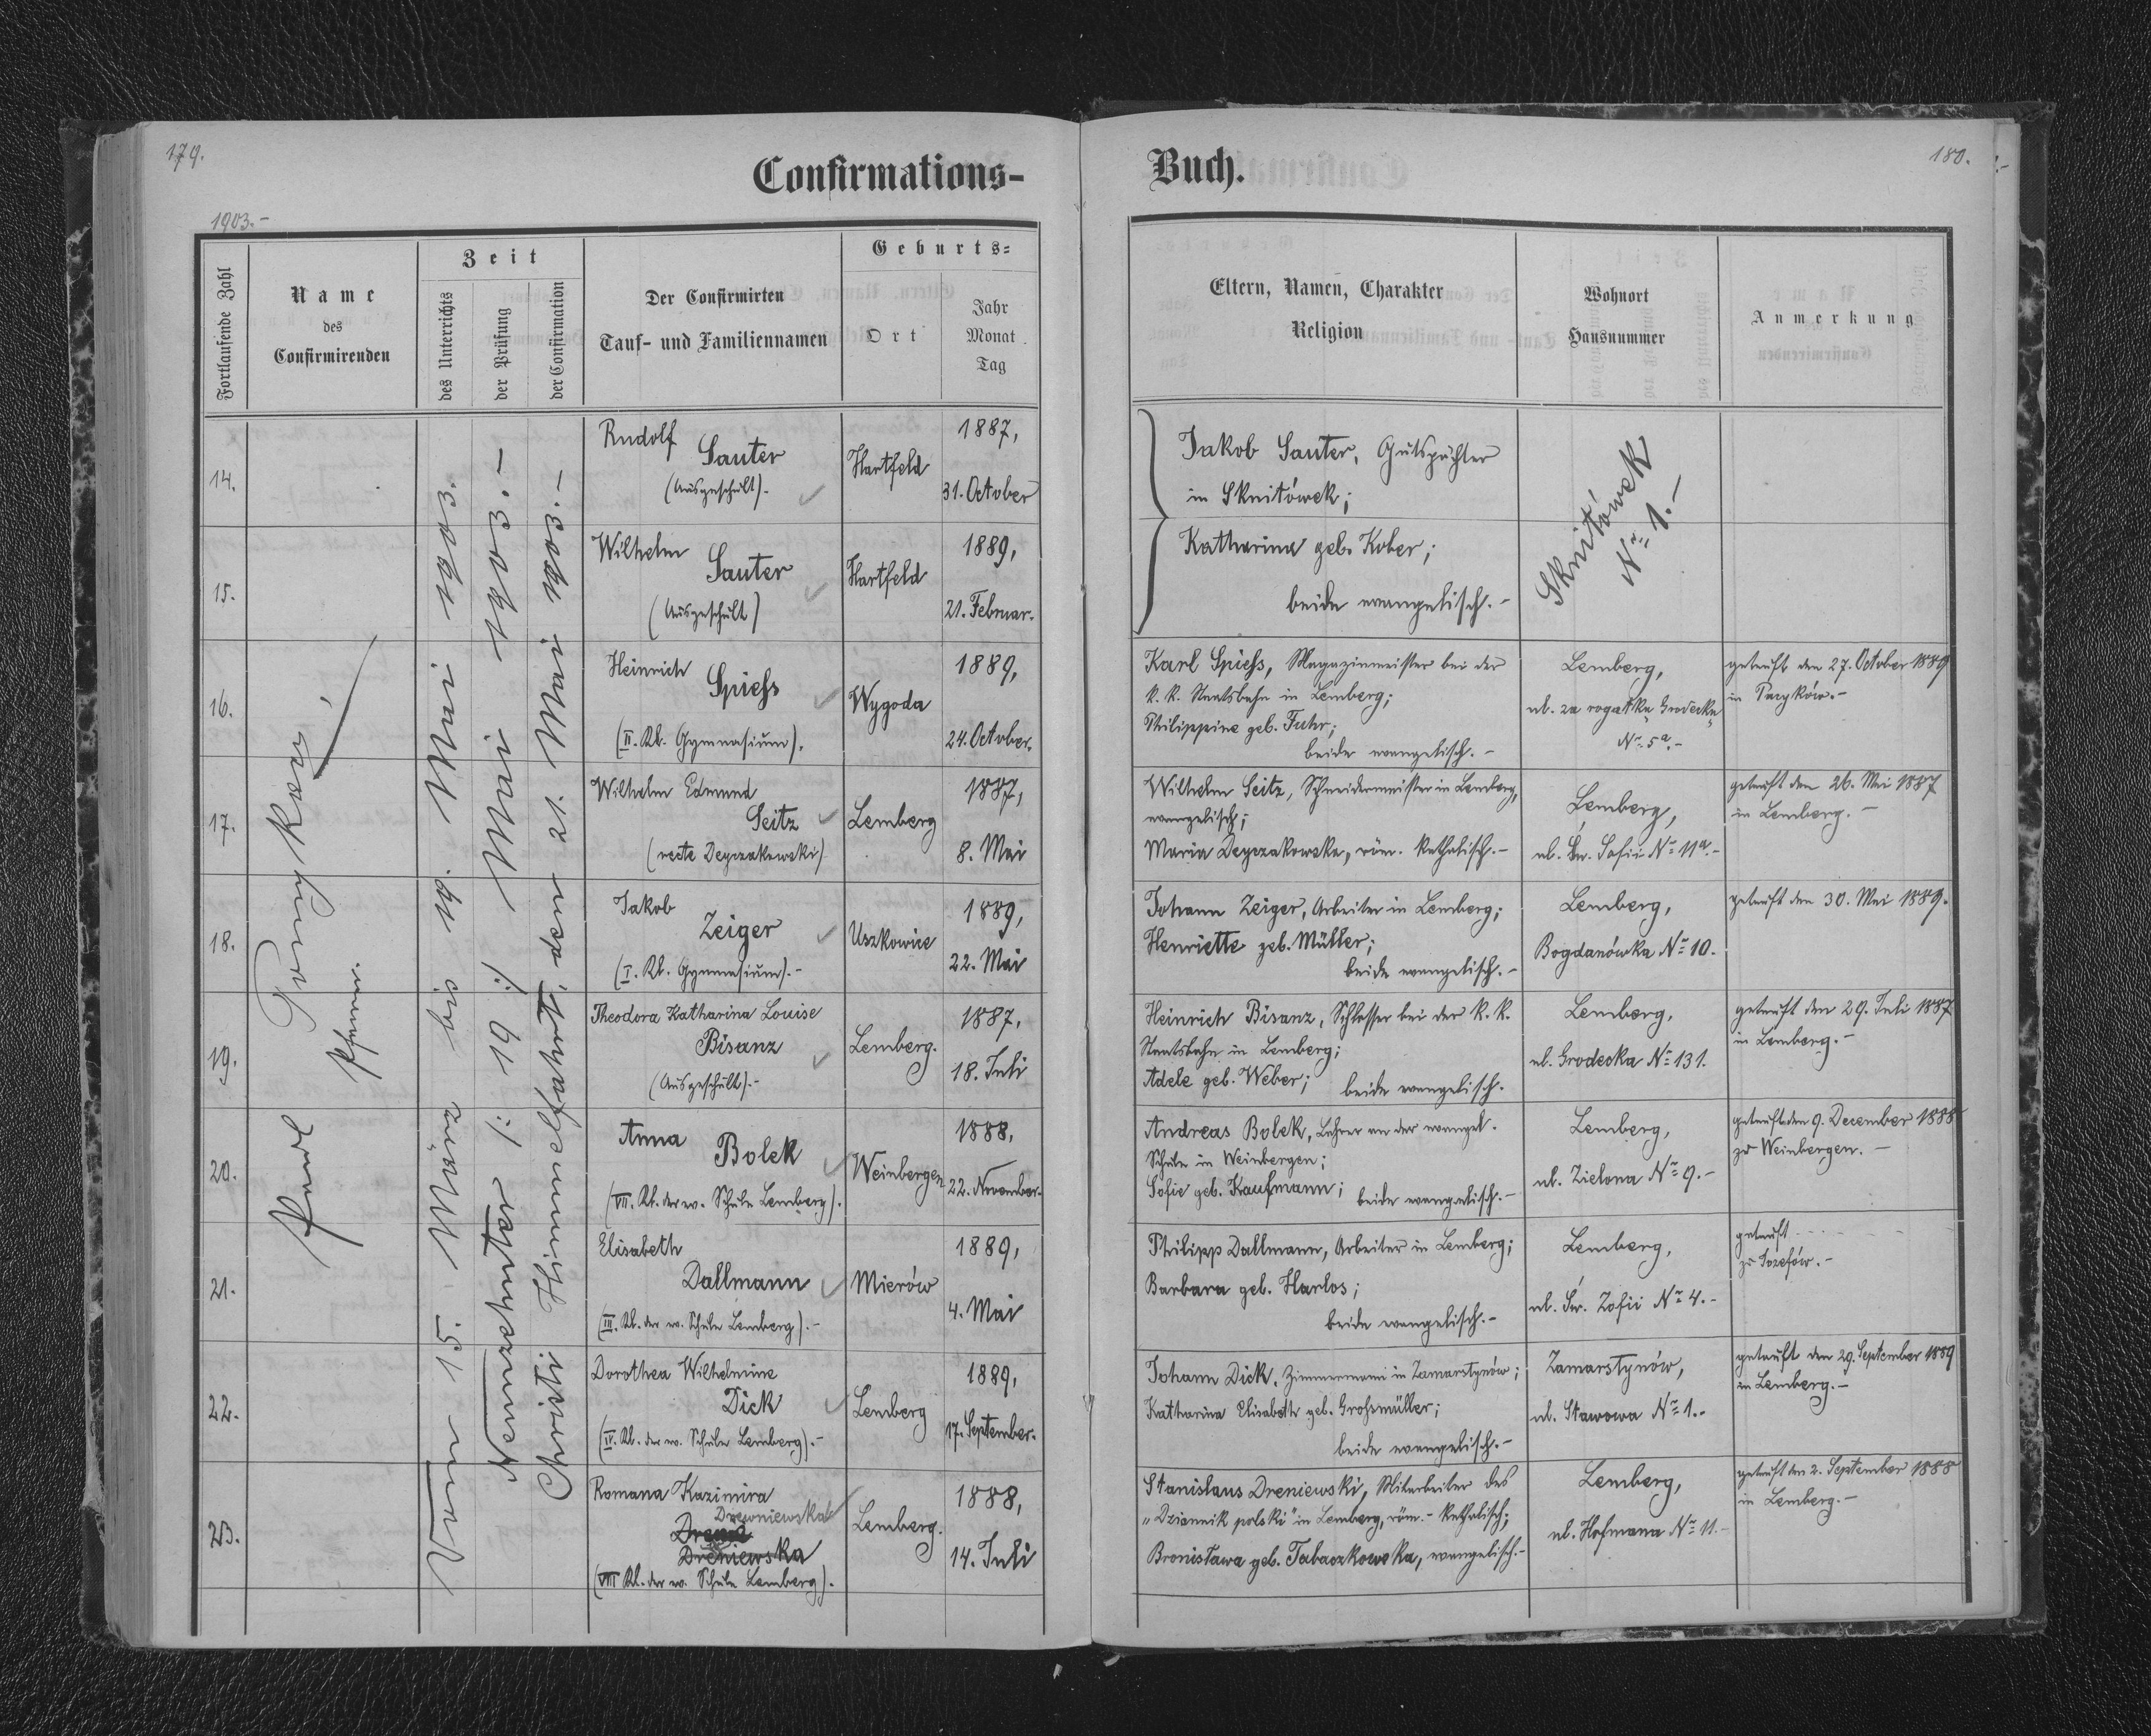 179.
Confirmations-
1903.-
Fortlaufende Zahl
Name
des
Confirmirenden
Zeit
des Unterrichts
der Prüfung
der Confirmation
Der Confirmirten
Tauf- und Familiennamen
Geburts=
Ort
Jahr
Monat
Tag
Pfarrer.
Vom 15. März bis 19. Mai 1903.
Neunzehnter /: 19 :/ Mai 1903.-
Christi Himmelfahrt, den 21. Mai 1903.-
14.
Rudolf
Sauter
(Ausgeschult).
Hartfeld
1887,
31. October
15.
Wilhelm
Sauter
(Ausgeschult)
Hartfeld
1889,
21. Februar.
16.
Heinrich
Spiess
(II. Kl. Gymnasium).
Wygoda
1889,
24. October.
17.
Wilhelm Edmund
Seitz
(recte Deyczakowski)
Lemberg
1887,
8. Mai
18.
Jakob
Zeiger
(I. Kl. Gymnasium).-
Uszkowice
1889,
22. Mai
19.
Theodora Katharina Louise
Bisanz
(Ausgeschult).-
Lemberg.
1887,
18. Juli
20.
Anna
Bolek
(VII. Kl. der ev. Schule Lemberg).
Weinbergen
1888,
22. November.
21.
Elisabeth
Dallmann
(III. Kl. der ev. Schule Lemberg).-
Mierów
1889,
4. Mai
22.
Dorothea Wilhelmine
Dick
(IV. Kl. der ev. Schule Lemberg).-
Lemberg
1889,
17. September.
23.
Romana Kazimira
Drewniewska
Dreniewska
(VII Kl. der ev. Schule Lemberg).
Lemberg.
1888,
14. Juli
Buch.
180.
Eltern, Namen, Charakter
Religion
Wohnort
Hausnummer
Anmerkung
Jakob Sauter, Gutspächter
in Sknitówek;
Katharina geb. Kober;
beide evangelisch.-
Sknitówek
Nr. 1.-
Karl Spiess, Magazinmeister bei der
k. k. Staatsbahn in Lemberg;
Philippine geb. Fuhr;
beide evangelisch.-
Lemberg,
ul. za rogatką Grodecką
Nr. 5a.-
getauft den 27. October 1889
in
Wilhelm Seitz, Schneidermeister in Lemberg,
evangelisch;
Maria Deyczakowska, röm. katholisch.-
Lemberg,
ul. Św. Sofii Nr. 11a.-
getauft den 26. Mai 1887
in Lemberg.-
Johann Zeiger, Arbeiter in Lemberg;
Henriette geb. Müller;
beide evangelisch.-
Lemberg,
Bogdanówka Nr. 10.
getauft den 30. Mai 1889.
Heinrich Bisanz, Schlosser bei der k. k.
Staatsbahn in Lemberg;
Adele geb. Weber;
beide evangelisch.
Lemberg,
ul. Grodecka Nr. 131.
getauft den 29. Juli 1887
in Lemberg.-
Andreas Bolek, Lehrer an der evangel.
Schule in Weinbergen;
Sofie geb. Kaufmann;
beide evangelisch.-
Lemberg,
ul. Zielona Nr. 9.-
getauft den 9. December 1888
zu Weinbergen.-
Philipp Dallmann, Arbeiter in Lemberg;
Barbara geb. Harlos;
beide evangelisch.-
Lemberg,
ul. Św. Zofii Nr. 4.-
getauft
zu Józefów.-
Johann Dick, Zimmermann in Zamarstynów;
Katharina Elisabeth geb. Grossmüller;
beide evangelisch.-
Zamarstynów,
ul. Stawowa Nr. 1.-
getauft den 29. September 1889
in Lemberg.-
Stanislaus Dreniewski, Mitarbeiter des
„Dziennik polski" in Lemberg, röm.- katholisch;
Bronisława geb. Tabaczkowska, evangelisch.-
Lemberg,
ul. Hofmana Nr. 11.-
getauft den 2. September 1888
in Lemberg.-